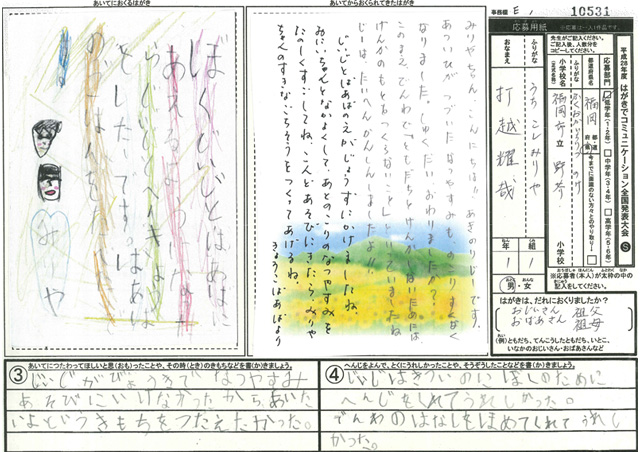 事務欄 E,
10531
あいてにおくるはがき
あいてからおくられてきたはがき
ぼくじいじとはあばに
あえる
らいじと
をしたいです。ばあば
の ごはんをた
みりや
みりやちゃんこんにちは!!あきのりじいじです。
あついひがつづいたなつやすみものこりすくなく
なりました。しゅくだいはおわりましたか?
このまえでんわで「ともだちとけんかしないためには
けんかのもとをつくらないこと」といっていましたね
じいじはたいへんかんしんしましたよ!!
じいじとばあばのえがじょうずにかけましたね。
みいちゃんとなかよくしてあとのこりのなつやすみを
たのしくすごしてね。こんどあそびにきたら、みりや
ちゃんのすきなごちそうをつくってあげるね。
きょうこばあばより
応募用紙
※応募者(本人)が太枠の中の記入をしてください。
平成28年度 はがきでコミュニケーション全国発表大会 S
先生がご記入ください。
ご記入後、人数分を
コピーしてください。
応募部門
低学年(1・2年)
中学年(3・4年)
高学年(5・6年)
都道府県名
福岡
都道府県
ふりがな
小学校名
福岡市立 野芥
小学校
今までに面識のない方々とのやり取り
おなまえ
ふりがな
うちこし みりや
打越 耀哉
年 組
1 1
男・女
はがきは、だれにおくりましたか?
おじいさん 祖父
おばあさん 祖母
(例)ともだち、てんこうしたともだち、いとこ、
いなかのおじいさん・おばあさんなど
③ あいてにつたわってほしいと思(おも)ったことや、その時(とき)のきもちなどを書(か)きましょう。
じいじがびょうきで、なつやすみ
あそびにいけなかったから、あいた
いよというきもちをつたえたかった。
④ へんじをよんで、とくにうれしかったことや、そうぞうしたことなどを書(か)きましょう。
じいじはきついのにぼくのために
へんじをくれてうれしかった。
でんわのはなしをほめてくれてうれし
かった。